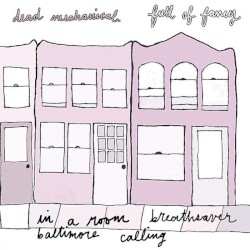 dead mechanical. full of fancy
in a room breathsaver
baltimore calling